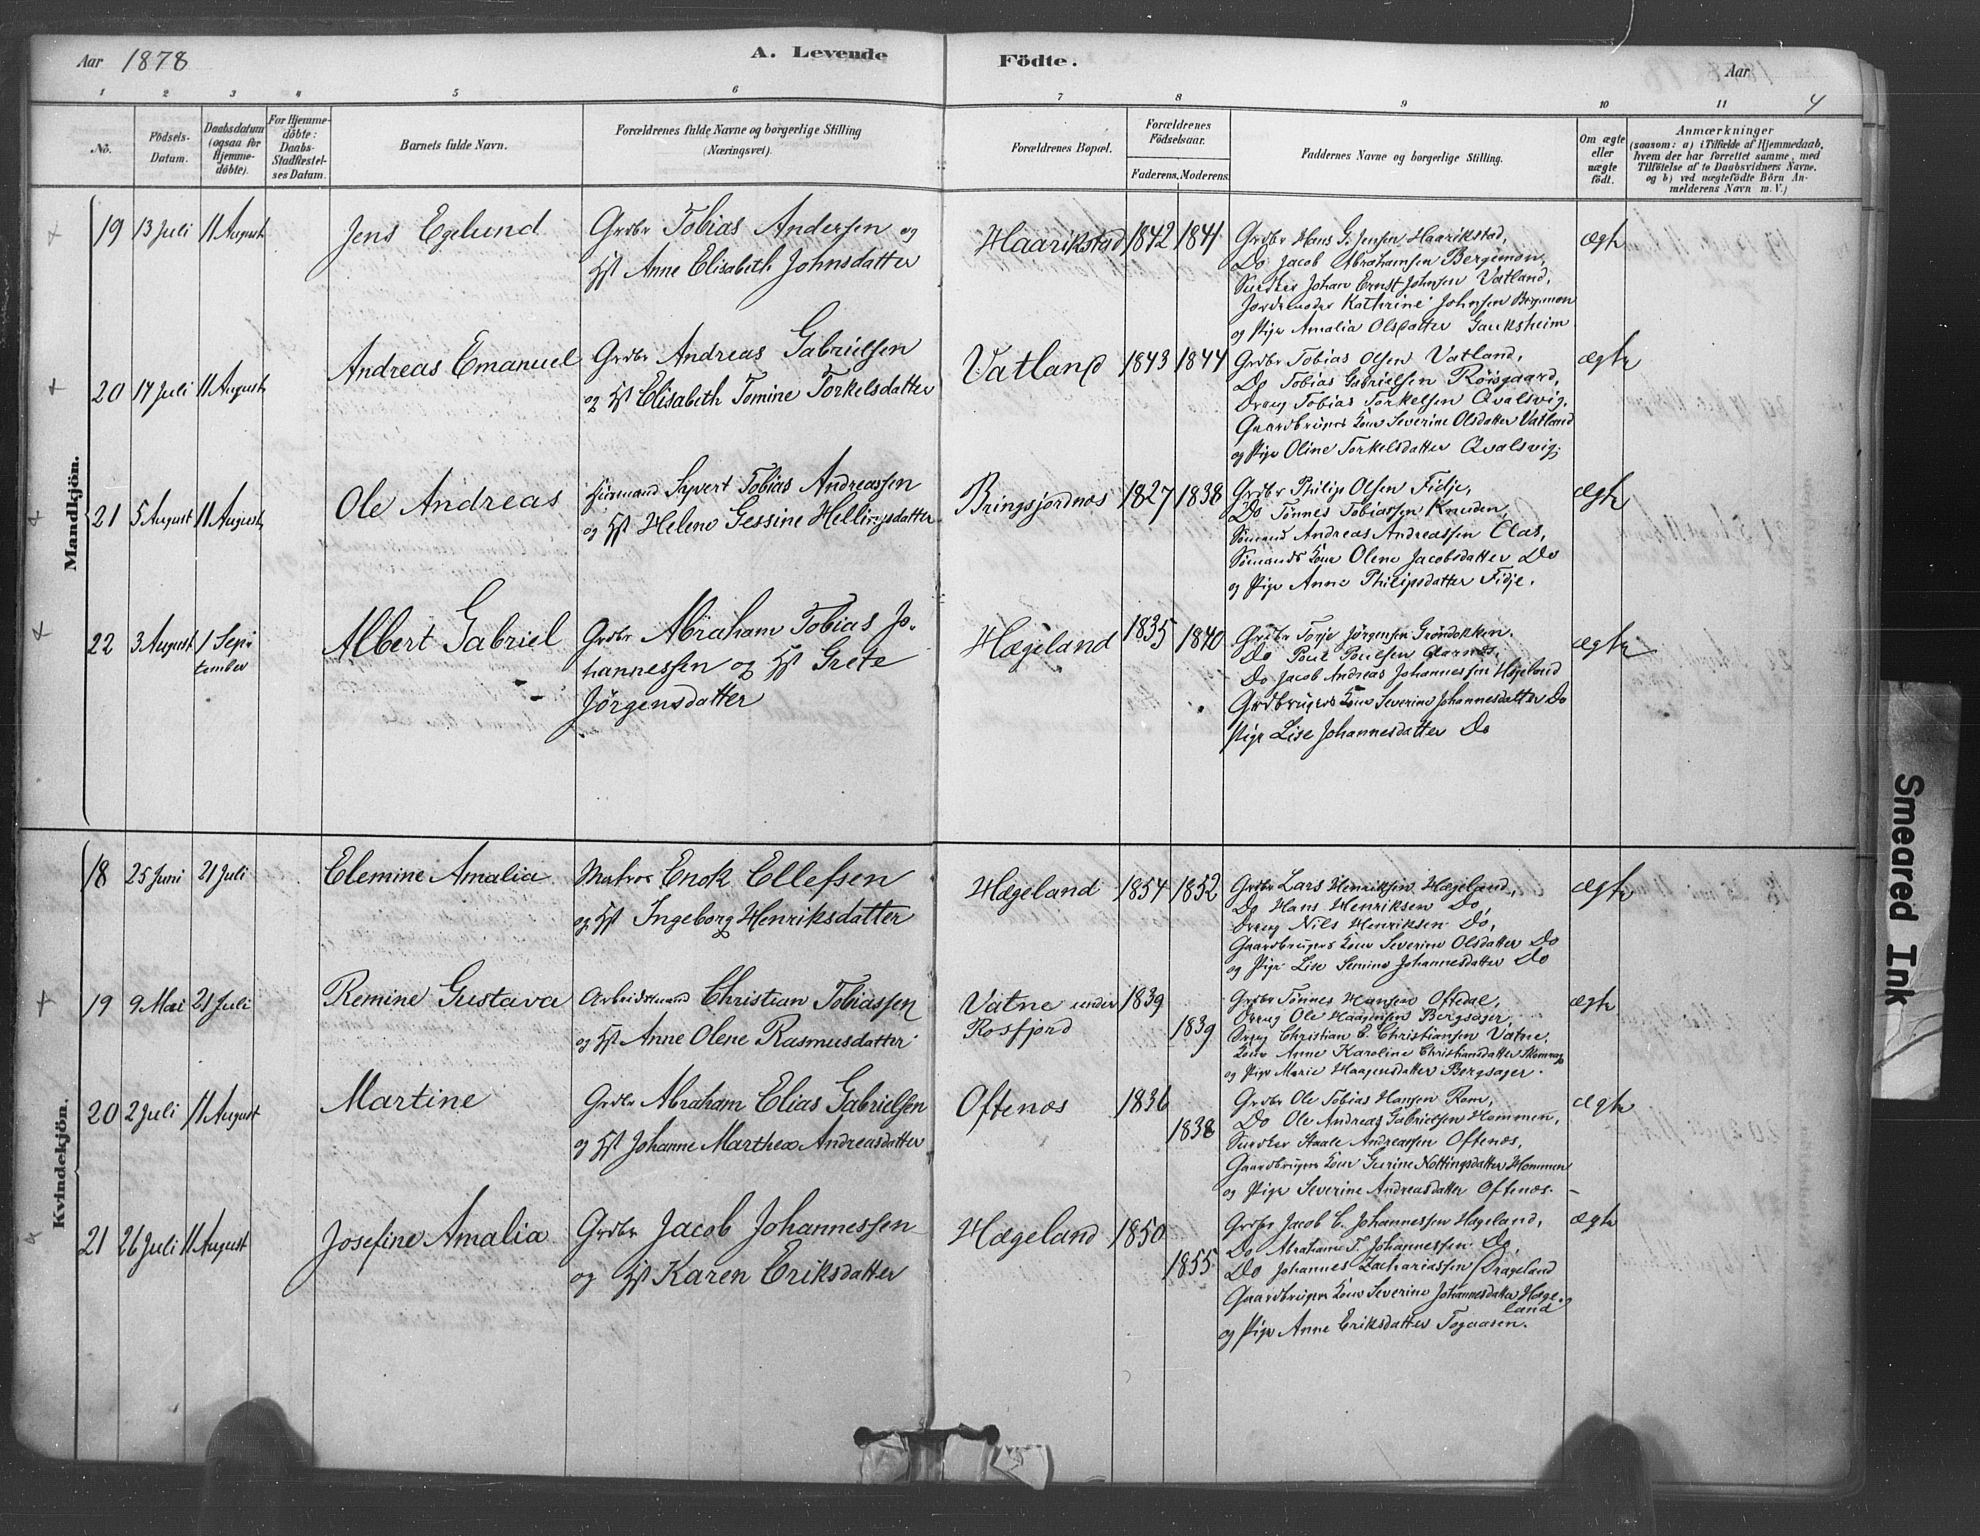 Aar 1878
A. Levende Födte.
Aar
4
1 2 3 4 5 6 7 8 9 10 11
No.
Födsels-
Datum.
Daabsdatum
(ogsaa for
Hjemme-
döbte).
For Hjemme-
döbte:
Daabs-
Stadfæstel-
ses Datum.
Barnets fulde Navn.
Forældrenes fulde Navne og borgerlige Stilling
(Næringsvei).
Forældrenes Bopæl.
Forældrenes
Födselsaar.
Faderens. Moderens.
Faddernes Navne og borgerlige Stilling.
Om ægte
eller
uægte
födt.
Anmærkninger
(saasom: a) i Tilfælde af Hjemmedaab,
hvem der har forrettet samme, med
Tilföielse af to Daabsvidners Navne.
og b) ved uægtefödte Börn An-
melderens Navn m. V.)
Mandkjön.
19 13 Juli 11 August
Jens Egelund
Grdbr Tobias Andersen og
Hst Anne Elisabeth Johnsdatter
Haarikstad 1842 1841
Grdbr Hans G. Jensen Haarikstad,
Do Jacob Abrahamsen Bergemon,
Snedker Johan Ernst Johnsen Vatland,
Jordemoder Kathrine Johnsen Bergemon
og Pige Amalia Olsdatter Gauksheim
ægte
20 14 Juli 11 August
Andreas Emanuel
Grdbr Andreas Gabrielsen
og Hst Elisabeth Tomine Torkelsdatter
Vatland 1843 1844
Grdbr Tobias Olsen Vatland,
Do Tobias Gabrielsen Röisgaard,
Dreng Tobias Torkelsen Qvalsvig,
Gaardbrugers Kone Severine Olsdatter Vatland
og Pige Oline Torkelsdatter Qvalsvig.
ægte
21 5 August 11 August
Ole Andreas
Huusmand Syvert Tobias Andreassen
og Hst Helene Gessine Hellingsdatter
Bringsjordnes 1827 1838
Grdbr Philip Olsen Fidje,
Do Tönnes Tobiassen Knuden,
Sömand Andreas Andreassen Aas,
Sömands Kone Olene Jacobsdatter Do
og Pige Anne Philipsdatter Fidje.
ægte
22 3 August 1 Sep-
tember
Albert Gabriel
Grdbr Abraham Tobias Jo-
hannessen og Hst Grete
Jörgensdatter
Hægeland 1835 1840
Grdbr Torje Jörgensen Gröndokken.
Do Poul Poulsen Aarnes,
Do Jacob Andreas Johannessen Hægeland
Grdbrugers Kone Severine Johannesdatter Do
Pige Lise Johannesdatter Do
ægte
Kvindekjön.
18 25 Juni 21 Juli
Elemine Amalia
Matros Enok Ellefsen
og Hst Ingeborg Henriksdatter
Hægeland 1854 1852
Grdbr Lars Henriksen Hægeland,
Do Hans Henriksen Do,
Dreng Nils Henriksen Do,
Gaardbrugers Kone Severine Olsdatter Do
og Pige Lise Semine Johannesdatter Do
ægte
19 9 Mai 21 Juli
Remine Gustava
Arbeidsmand Christian Tobiassen
og Hst Anne Olene Rasmusdatter
Vatne under
Rosfjord
1839 1839
Grdbr Tönnes Hansen Oftedal,
Dreng Ole Haagensen Bergsager,
Dreng Christian E. Christiansen Vatne.
Kone Anne Karoline Christiansdatter
og Pige Marie Haagensdatter Bergsager.
ægte
20 2 Juli 11 August
Martine
Grdbr Abraham Elias Gabrielsen
og Hst Johanne Marthea Andreasdatter
Oftenæs 1836 1838
Grdbr Ole Tobias Hansen Rom,
Do Ole Andreas Gabrielsen Hommen,
Snedker Staale Andreassen Oftenæs,
Gaardbrugers Kone Gurine Nottingsdatter Hommen
og Pige Severine Andreasdatter Oftenæs.
ægte
21 26 Juli 11 August
Josefine Amalia
Grdbr Jacob Johannessen
og Hst Karen Eriksdatter
Hægeland 1850 1855
Grdbr Jacob E. Johannessen Hægeland,
Do Abraham T. Johannessen Do,
Do Johannes Zachariassen Drageland
Gaardbrugers Kone Severine Johannesdatter Hæge-
land
og Pige Anne Eriksdatter Togaasen.
ægte
Smeared Ink